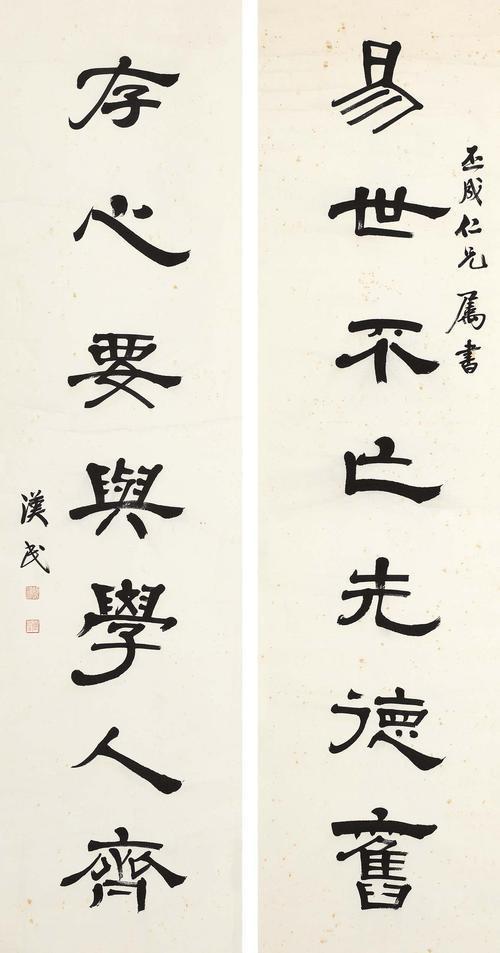 丕成仁兄 屬書
易世不亡先德舊
存心要與學人齊
漢民